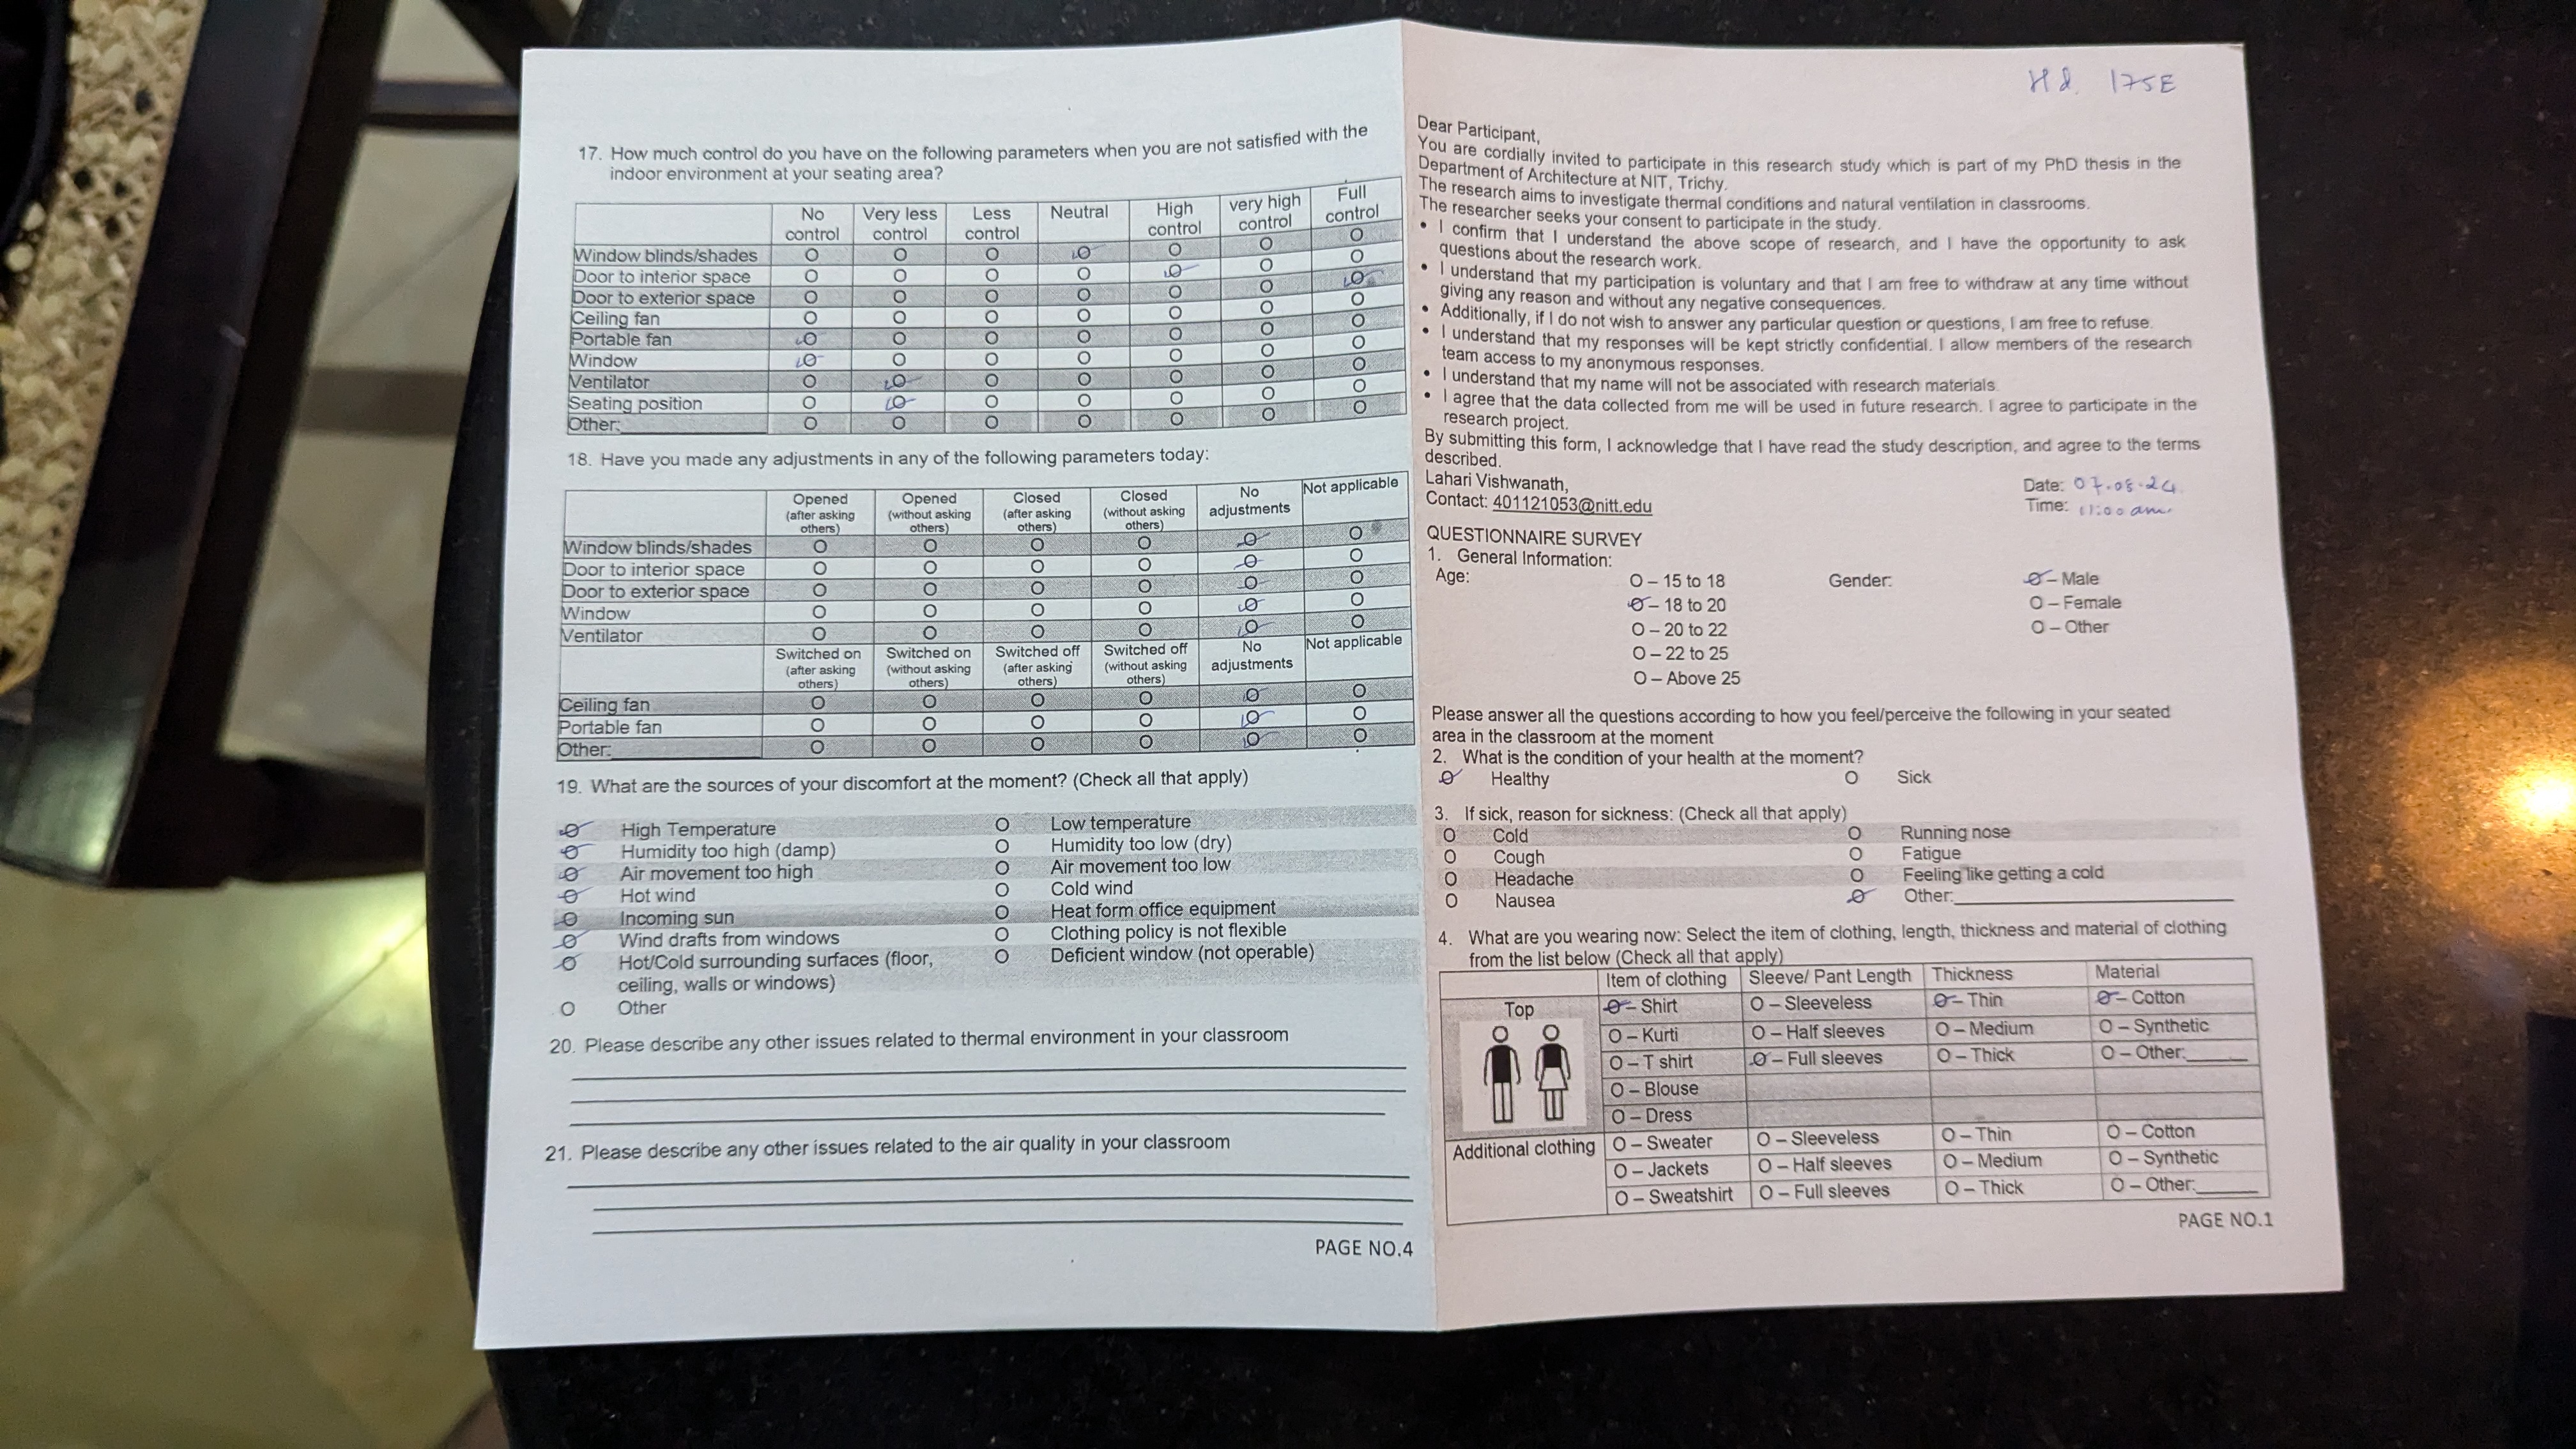 17. How much control do you have on the following parameters when you are not satisfied with the
indoor environment at your seating area?
No control Very less control Less control Neutral High control very high control Full control
Window blinds/shades O O O O O O O
Door to interior space O O O O O O O
Door to exterior space O O O O O O O
Ceiling fan O O O O O O O
Portable fan O O O O O O O
Window O O O O O O O
Ventilator O O O O O O O
Seating position O O O O O O O
Other: O O O O O O O
18. Have you made any adjustments in any of the following parameters today:
Opened (after asking others) Opened (without asking others) Closed (after asking others) Closed (without asking others) No adjustments Not applicable
Window blinds/shades O O O O O O
Door to interior space O O O O O O
Door to exterior space O O O O O O
Window O O O O O O
Ventilator O O O O O O
Switched on (after asking others) Switched on (without asking others) Switched off (after asking others) Switched off (without asking others) No adjustments Not applicable
Ceiling fan O O O O O O
Portable fan O O O O O O
Other: O O O O O O
19. What are the sources of your discomfort at the moment? (Check all that apply)
O High Temperature O Low temperature
O Humidity too high (damp) O Humidity too low (dry)
O Air movement too high O Air movement too low
O Hot wind O Cold wind
O Incoming sun O Heat form office equipment
O Wind drafts from windows O Clothing policy is not flexible
O Hot/Cold surrounding surfaces (floor, O Deficient window (not operable)
ceiling, walls or windows)
O Other
20. Please describe any other issues related to thermal environment in your classroom
21. Please describe any other issues related to the air quality in your classroom
PAGE NO.4
175E
Dear Participant,
You are cordially invited to participate in this research study which is part of my PhD thesis in the
Department of Architecture at NIT, Trichy.
The research aims to investigate thermal conditions and natural ventilation in classrooms.
The researcher seeks your consent to participate in the study.
• I confirm that I understand the above scope of research, and I have the opportunity to ask
questions about the research work.
• I understand that my participation is voluntary and that I am free to withdraw at any time without
giving any reason and without any negative consequences.
• Additionally, if I do not wish to answer any particular question or questions, I am free to refuse.
• I understand that my responses will be kept strictly confidential. I allow members of the research
team access to my anonymous responses.
• I understand that my name will not be associated with research materials.
• I agree that the data collected from me will be used in future research. I agree to participate in the
research project.
By submitting this form, I acknowledge that I have read the study description, and agree to the terms
described.
Lahari Vishwanath,
Contact: 401121053@nitt.edu
Date: 07.08.24
Time: 11:00 am
QUESTIONNAIRE SURVEY
1. General Information:
Age: O – 15 to 18 Gender: O – Male
O – 18 to 20 O – Female
O – 20 to 22 O – Other
O – 22 to 25
O – Above 25
Please answer all the questions according to how you feel/perceive the following in your seated
area in the classroom at the moment
2. What is the condition of your health at the moment?
O Healthy O Sick
3. If sick, reason for sickness: (Check all that apply)
O Cold O Running nose
O Cough O Fatigue
O Headache O Feeling like getting a cold
O Nausea O Other:
4. What are you wearing now: Select the item of clothing, length, thickness and material of clothing
from the list below (Check all that apply)
Item of clothing Sleeve/ Pant Length Thickness Material
Top O – Shirt O – Sleeveless O – Thin O – Cotton
O – Kurti O – Half sleeves O – Medium O – Synthetic
O – T shirt O – Full sleeves O – Thick O – Other:
O – Blouse
O – Dress
Additional clothing O – Sweater O – Sleeveless O – Thin O – Cotton
O – Jackets O – Half sleeves O – Medium O – Synthetic
O – Sweatshirt O – Full sleeves O – Thick O – Other:
PAGE NO.1